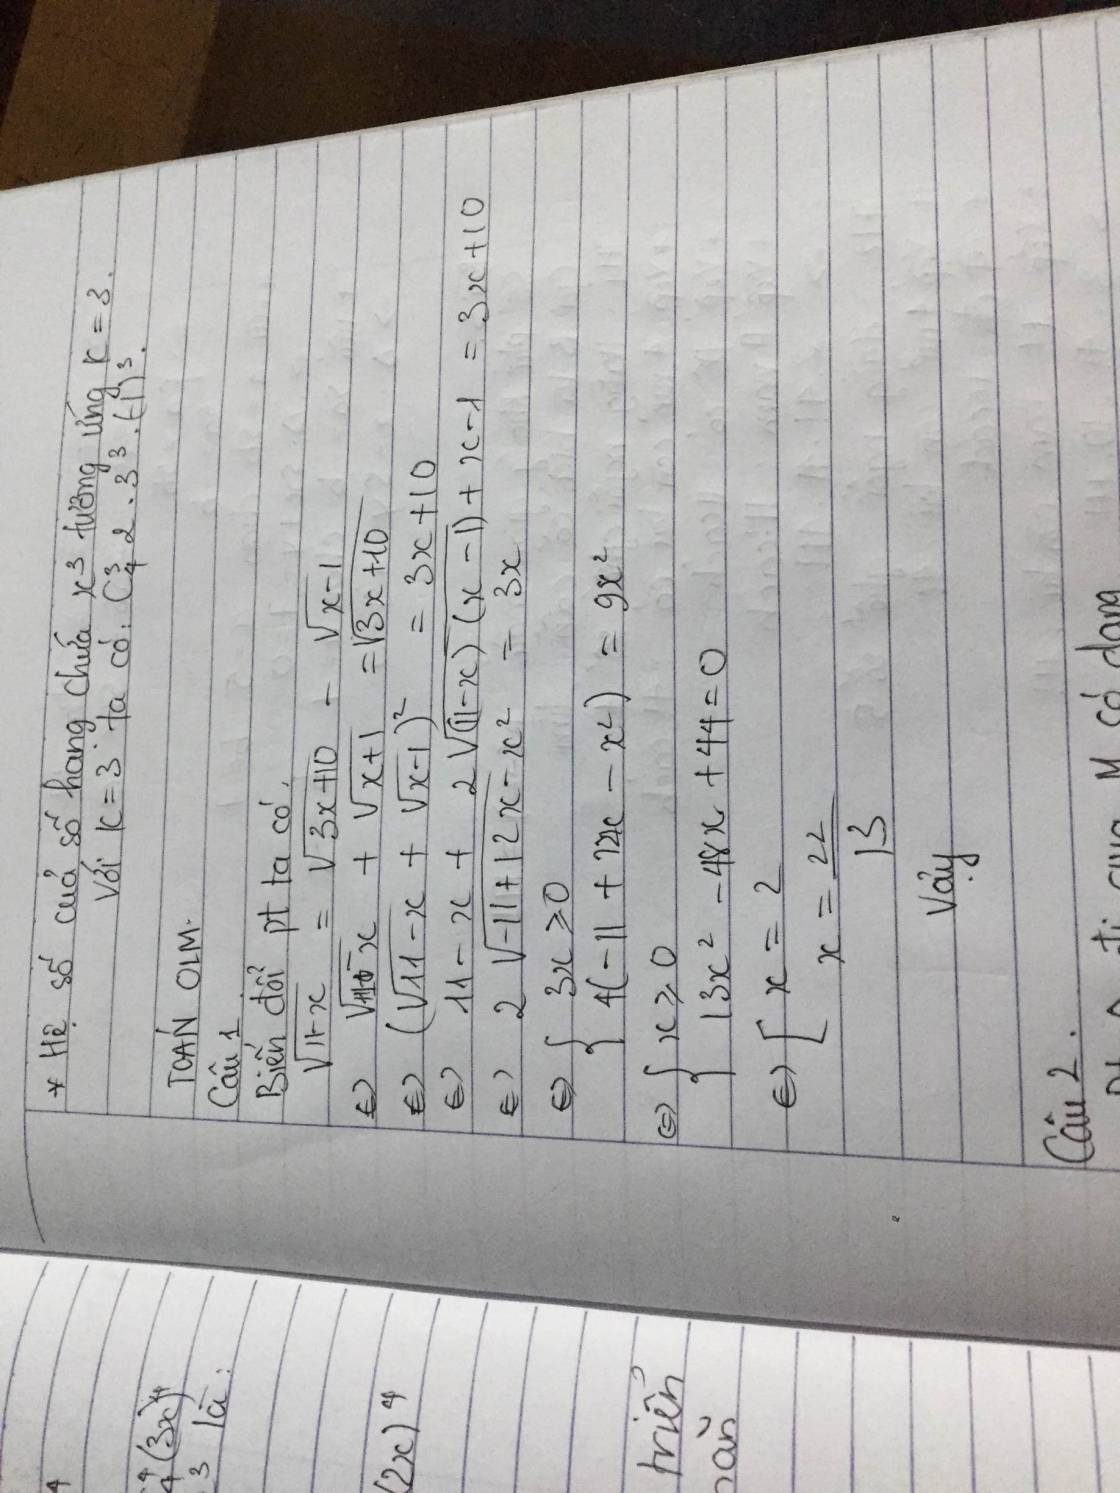 * Hệ số của số hạng chứa x³ tương ứng k = 3.
Với k = 3 ta có: C₄³ 2 . 3³ . (-1)³.
TOÁN OLM.
Câu 1
Biến đổi pt ta có.
√11-x = √3x+10 - √x-1
⇔ x + √x+1 = √3x+10
⇔ (√11-x + √x-1)² = 3x+10
⇔ 11-x + 2√(11-x)(x-1) + x-1 = 3x+10
⇔ 2√-11+12x-x² = 3x
⇔ { 3x ≥ 0
4(-11 + 12x - x²) = 9x²
⇔ { x ≥ 0
13x² - 48x + 44 = 0
⇔ [ x = 2
x = 22/13
Vậy
Câu 2.
M có dạng
⁴(3x)⁴
3 là:
(2x)⁴
triển
4